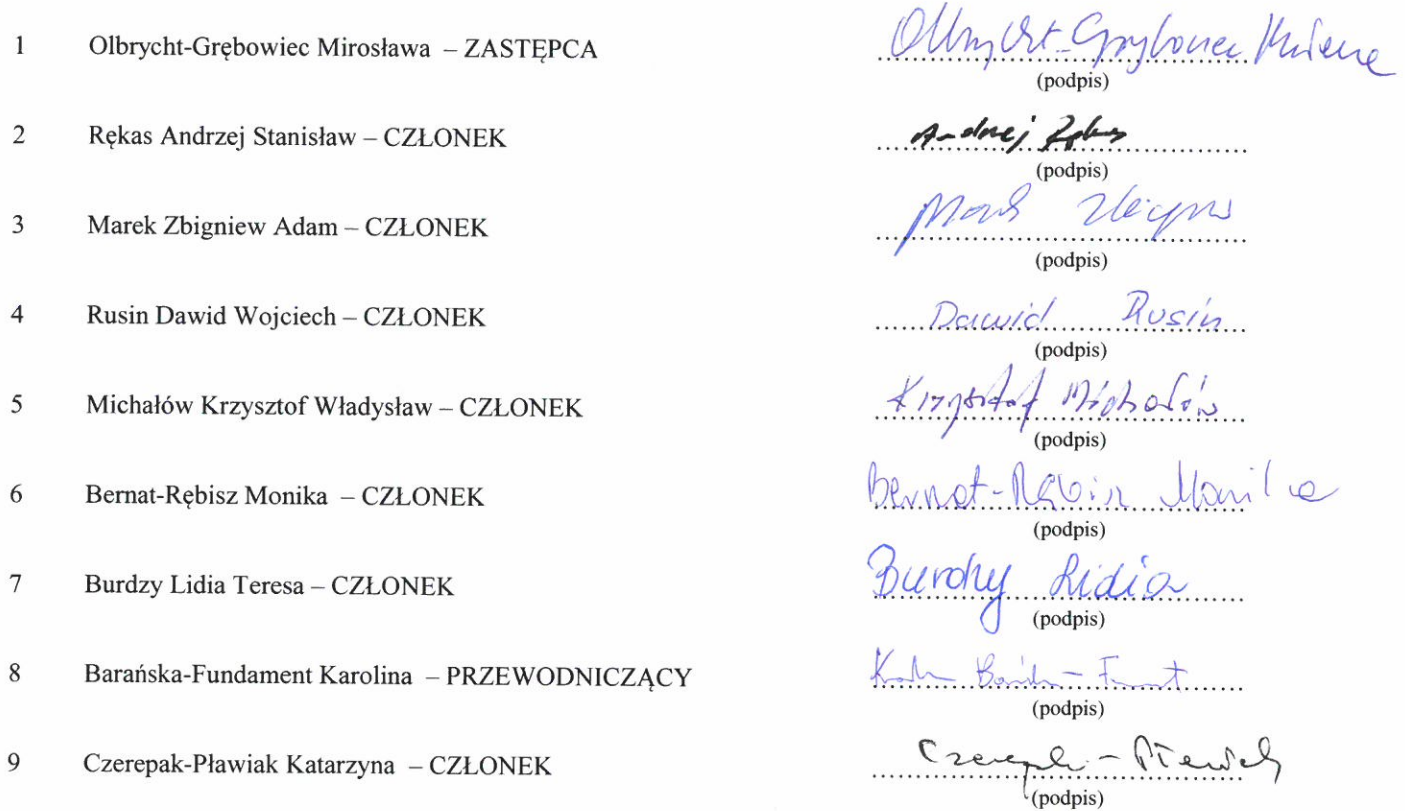 1 Olbrycht-Grębowiec Mirosława – ZASTĘPCA
(podpis)
2 Rękas Andrzej Stanisław – CZŁONEK Andrzej
(podpis)
3 Marek Zbigniew Adam – CZŁONEK
(podpis)
4 Rusin Dawid Wojciech – CZŁONEK Dawid Rusin
(podpis)
5 Michałów Krzysztof Władysław – CZŁONEK Krzysztof Michałów
(podpis)
6 Bernat-Rębisz Monika – CZŁONEK Bernat-Rębisz Monika
(podpis)
7 Burdzy Lidia Teresa – CZŁONEK Burdzy Lidia
(podpis)
8 Barańska-Fundament Karolina – PRZEWODNICZĄCY
(podpis)
9 Czerepak-Pławiak Katarzyna – CZŁONEK
(podpis)